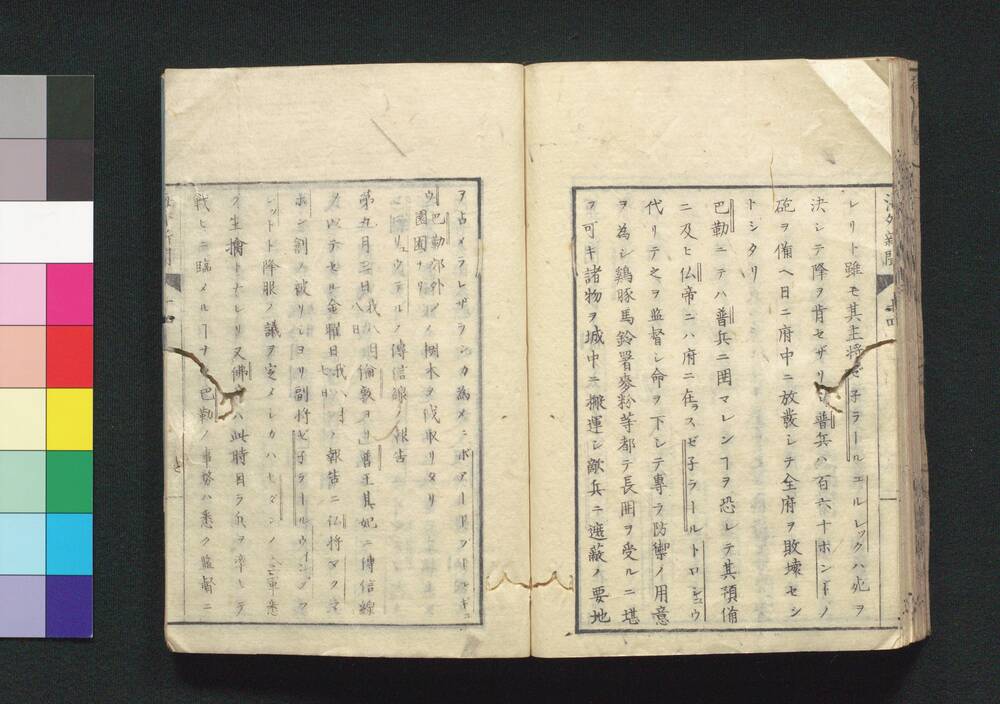 レリト雖モ其主将ゼ子ラールユルレックハ死ヲ
決シテ降ヲ肯セザリ普兵ハ百六十ボンドノ
砲ヲ備ヘ日ニ府中ニ放発シテ全府ヲ敗壊セシ
トシタリ
巴勒ニテハ普兵ニ囲マレンヿヲ恐レテ其預備
ニ及ヒ仏帝ニハ府ニ在ラスゼ子ラールトロシュウ
代リテ之ヲ監督シ命ヲ下シテ専ラ防禦ノ用意
ヲ為シ鶏豚馬鈴署麥粉等都テ長囲ヲ受ルニ堪
フ可キ諸物ヲ城中ニ搬運シ敵兵ニ遮蔽ノ要地
海外新聞
ヲ占メラレザランカ為メニボアードブーロギュ
ウ巴勒郊外ノ樹木ヲ伐取リタリ
園囿ナリ
リュウテルノ傳信線ノ報告
第九月三日我八月八日倫敦ヨリ普王其妃ニ傳信線
ヲ以テセル金曜日ノ報告ニ仏将マクマ
ホン創ヲ被リシヨリ副将ゼ子ラールウィンプフ
降服ノ議ヲ定メシカハセダンノ三軍悉
ク生擒トナレリ又佛帝ハ此時目ラ兵ヲ率ヒテ
戦ヒニ臨メルヿナク巴勒ノ事務ハ悉ク監督ニ